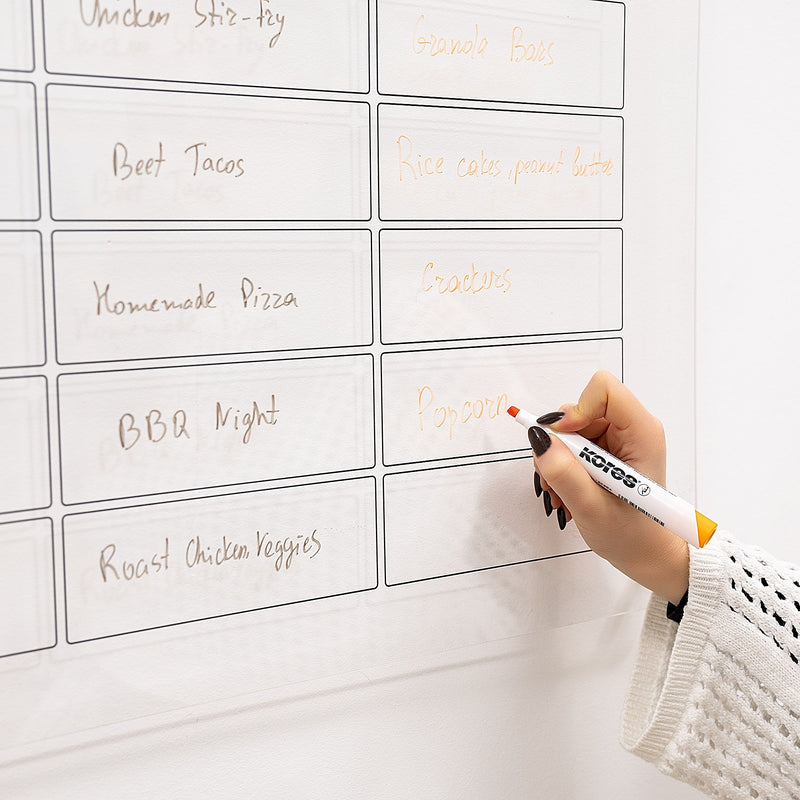 Chicken Stir-fry
Granola Bars
Beet Tacos
Rice cakes, peanut butter
Homemade Pizza
Crackers
BBQ Night
Popcorn
Kores
Roast Chicken, Veggies